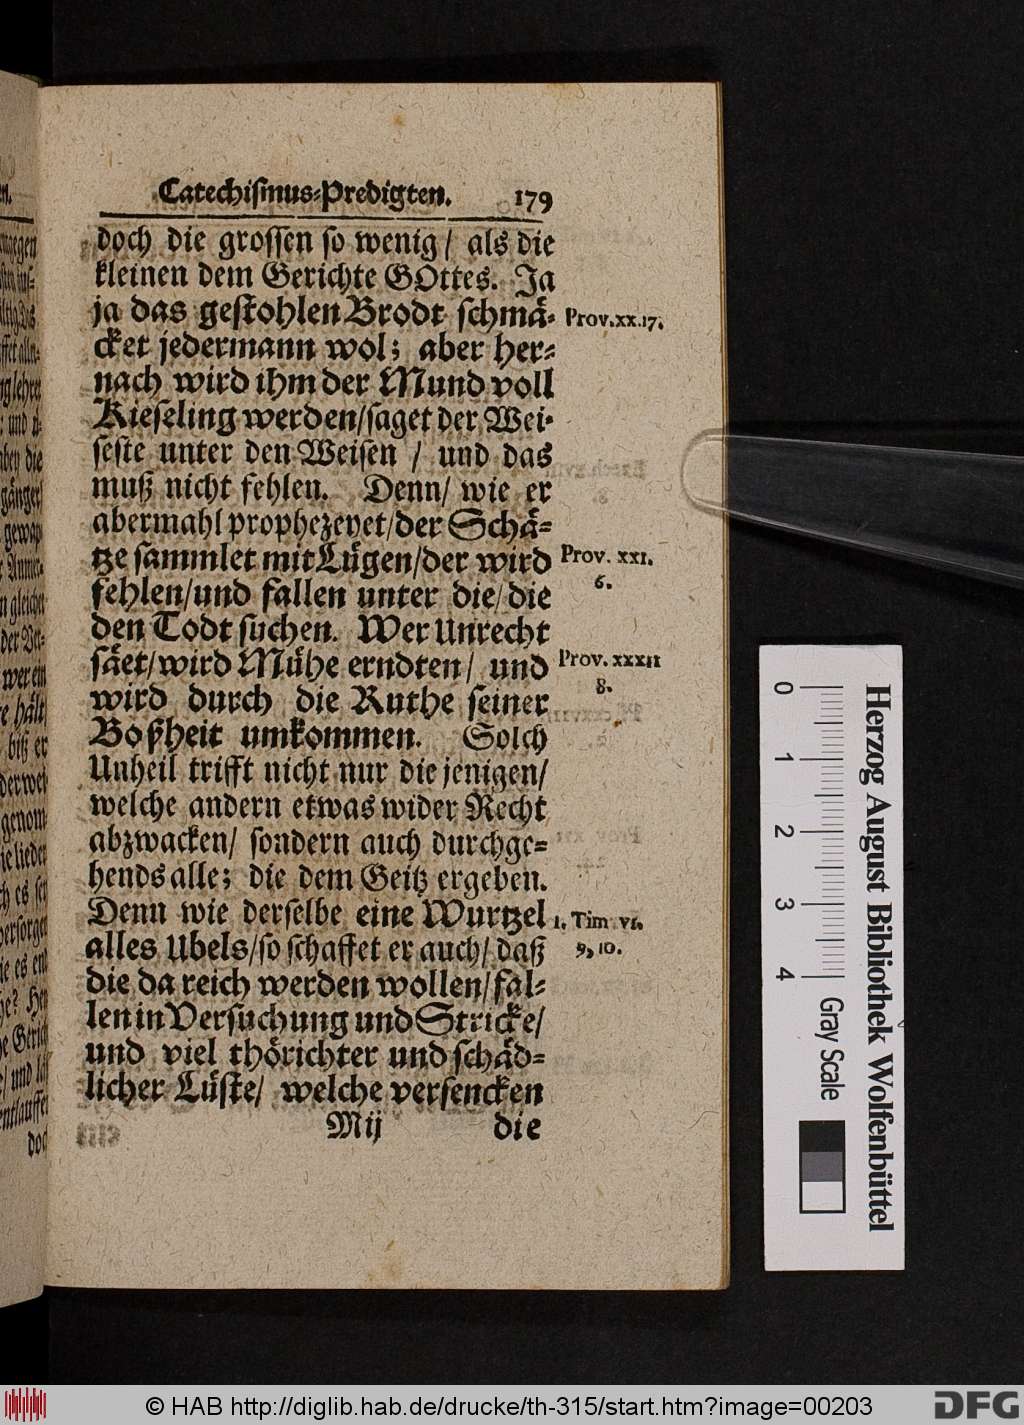 Catechiſmus-Predigten. 179
doch die groſſen ſo wenig/ als die
kleinen dem Gerichte GOttes. Ja
ja das geſtohlen Brodt ſchmä- Prov.xx.17.
cket jedermann wol; aber her-
nach wird ihm der Mund voll
Kieſeling werden/ſaget der Wei-
ſeſte unter den Weiſen / und das
muß nicht fehlen. Denn/ wie er
abermahl prophezeyet/der Schä-
tze ſammlet mit Lügen/der wird Prov. xxi.
fehlen/und fallen unter die/die 6.
den Todt ſuchen. Wer Unrecht
ſäet/wird Mühe erndten/ und Prov. xxxii
wird durch die Ruthe ſeiner 8.
Boßheit umkommen. Solch
Unheil trifft nicht nur die jenigen/
welche andern etwas wider Recht
abzwacken/ ſondern auch durchge-
hends alle; die dem Geitz ergeben.
Denn wie derſelbe eine Wurtzel 1. Tim vi.
alles Ubels/ſo ſchaffet er auch/ daß 9, 10.
die da reich werden wollen/fal-
len in Verſuchung und Stricke/
und viel thörichter und ſchäd-
licher Lüſte/ welche verſencken
Mij die
0 1 2 3 4
Gray Scale
Herzog August Bibliothek Wolfenbüttel
© HAB http://diglib.hab.de/drucke/th-315/start.htm?image=00203
DFG